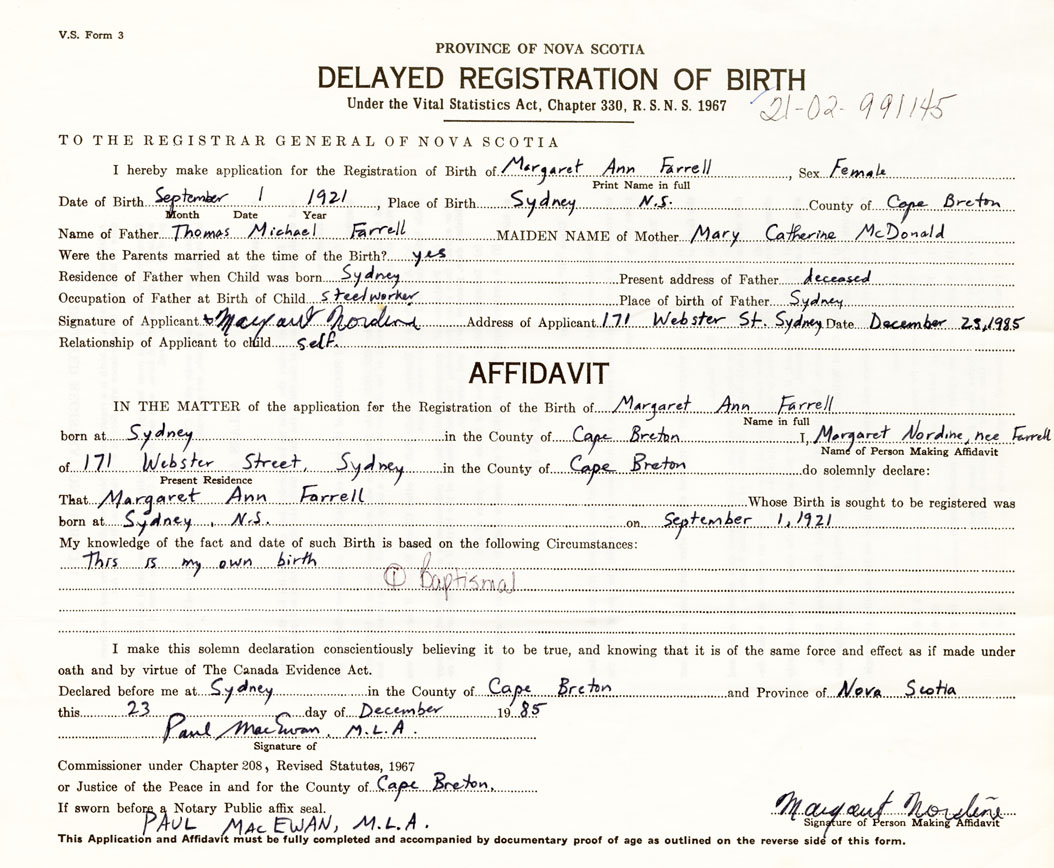 V.S. Form 3
PROVINCE OF NOVA SCOTIA
DELAYED REGISTRATION OF BIRTH
Under the Vital Statistics Act, Chapter 330, R. S. N. S. 1967 21-02-991145
TO THE REGISTRAR GENERAL OF NOVA SCOTIA
I hereby make application for the Registration of Birth of Margaret Ann Farrell, Sex Female
Print Name in full
Date of Birth September 1 1921, Place of Birth Sydney N.S. County of Cape Breton
Month Date Year
Name of Father Thomas Michael Farrell MAIDEN NAME of Mother Mary Catherine McDonald
Were the Parents married at the time of the Birth? yes
Residence of Father when Child was born Sydney Present address of Father deceased
Occupation of Father at Birth of Child steelworker Place of birth of Father Sydney
Signature of Applicant Margaret Nordine Address of Applicant 171 Webster St. Sydney Date December 23, 1985
Relationship of Applicant to child self.
AFFIDAVIT
IN THE MATTER of the application for the Registration of the Birth of Margaret Ann Farrell
Name in full
born at Sydney in the County of Cape Breton I, Margaret Nordine, nee Farrell
Name of Person Making Affidavit
of 171 Webster Street, Sydney in the County of Cape Breton do solemnly declare:
Present Residence
That Margaret Ann Farrell Whose Birth is sought to be registered was
born at Sydney, N.S. on September 1, 1921
My knowledge of the fact and date of such Birth is based on the following Circumstances:
This is my own birth
① Baptismal
I make this solemn declaration conscientiously believing it to be true, and knowing that it is of the same force and effect as if made under
oath and by virtue of The Canada Evidence Act.
Declared before me at Sydney in the County of Cape Breton and Province of Nova Scotia
this 23 day of December 1985
Paul MacEwan, M.L.A.
Signature of
Commissioner under Chapter 208, Revised Statutes, 1967
or Justice of the Peace in and for the County of Cape Breton.
If sworn before a Notary Public affix seal.
PAUL MacEWAN, M.L.A.
Margaret Nordine
Signature of Person Making Affidavit
This Application and Affidavit must be fully completed and accompanied by documentary proof of age as outlined on the reverse side of this form.